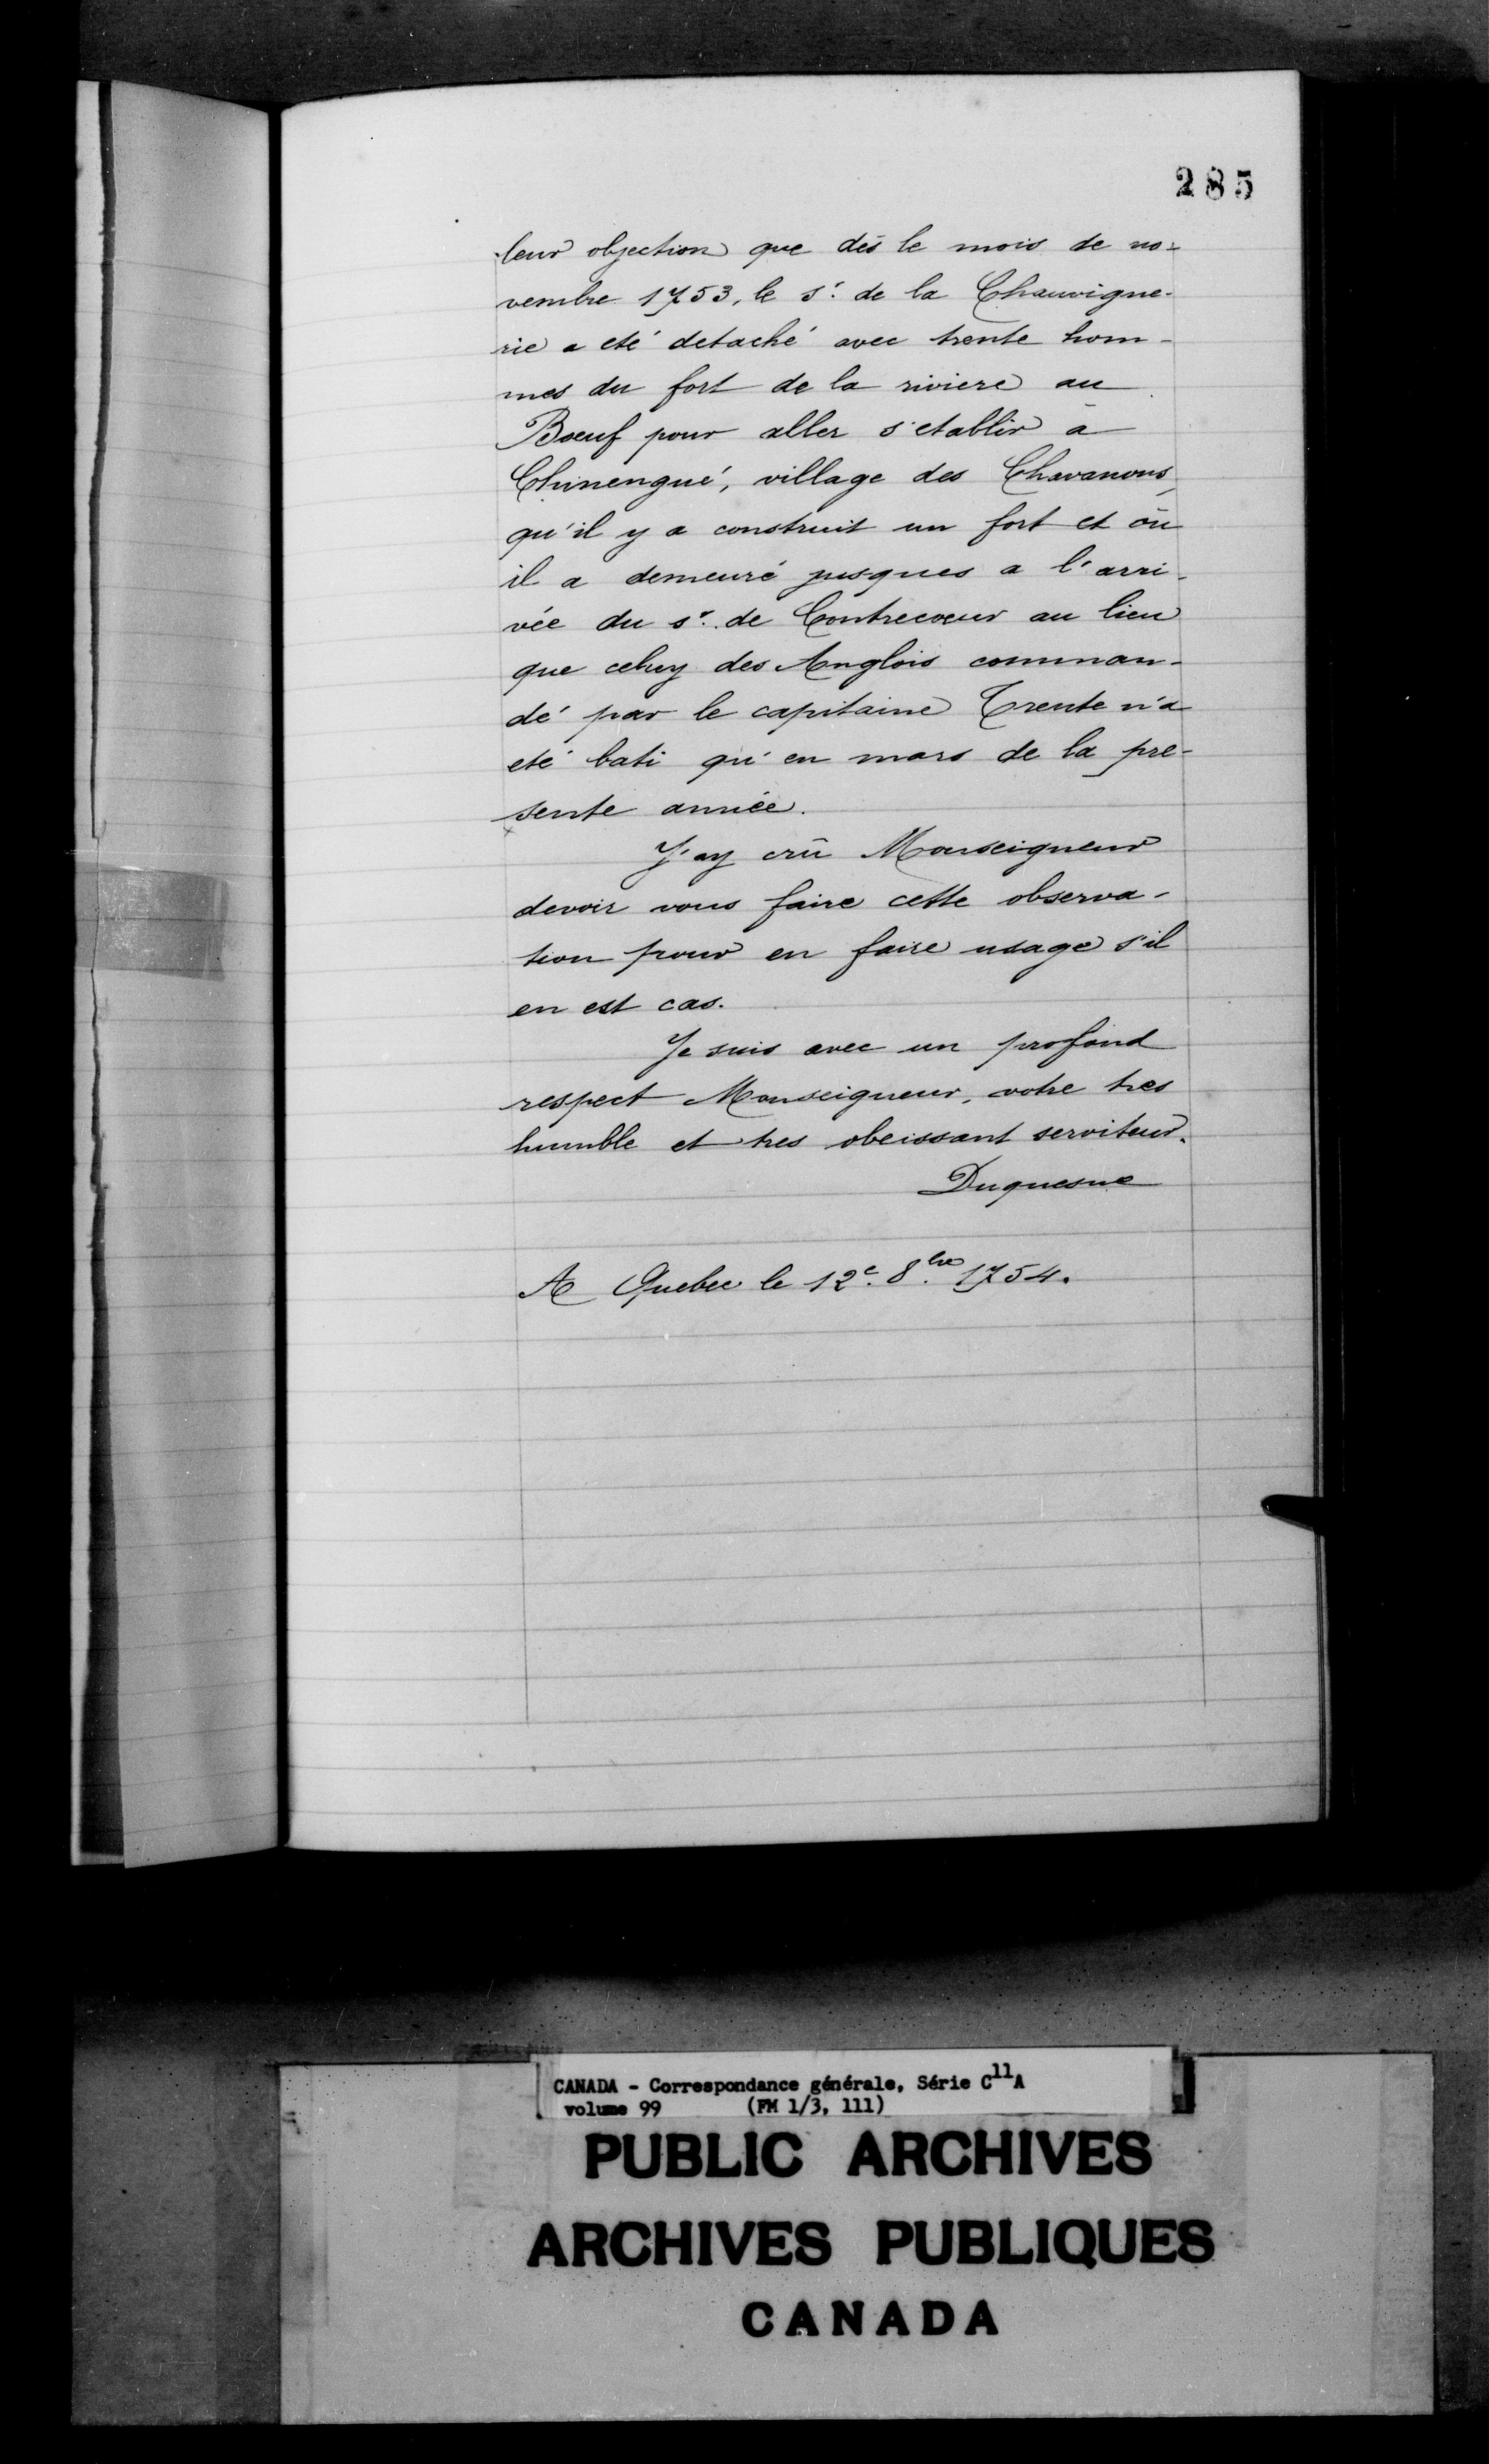 285
leur objection que dès le mois de no-
vembre 1753, le sr. de la Chauvigne-
rie a eté detaché avec trente hom-
mes du fort de la riviere au
Boeuf pour aller s'etablir à
Chinengué, village des Chavanons,
qu'il y a construit un fort et où
il a demeuré jusques a l'arri-
vée du sr. de Contrecoeur au lieu
que celuy des Anglois comman-
dé par le capitaine Trente n'a
eté bati qu'en mars de la pre-
sente année.
J'ay crû Monseigneur
devoir vous faire cette observa-
tion pour en faire usage s'il
en est cas.
Je suis avec un profond
respect Monseigneur, votre tres
humble et tres obeissant serviteur.
Duquesne
A Quebec le 12e. 8bre 1754.
CANADA - Correspondance générale, Série C11A
volume 99 (FM 1/3, 111)
PUBLIC ARCHIVES
ARCHIVES PUBLIQUES
CANADA